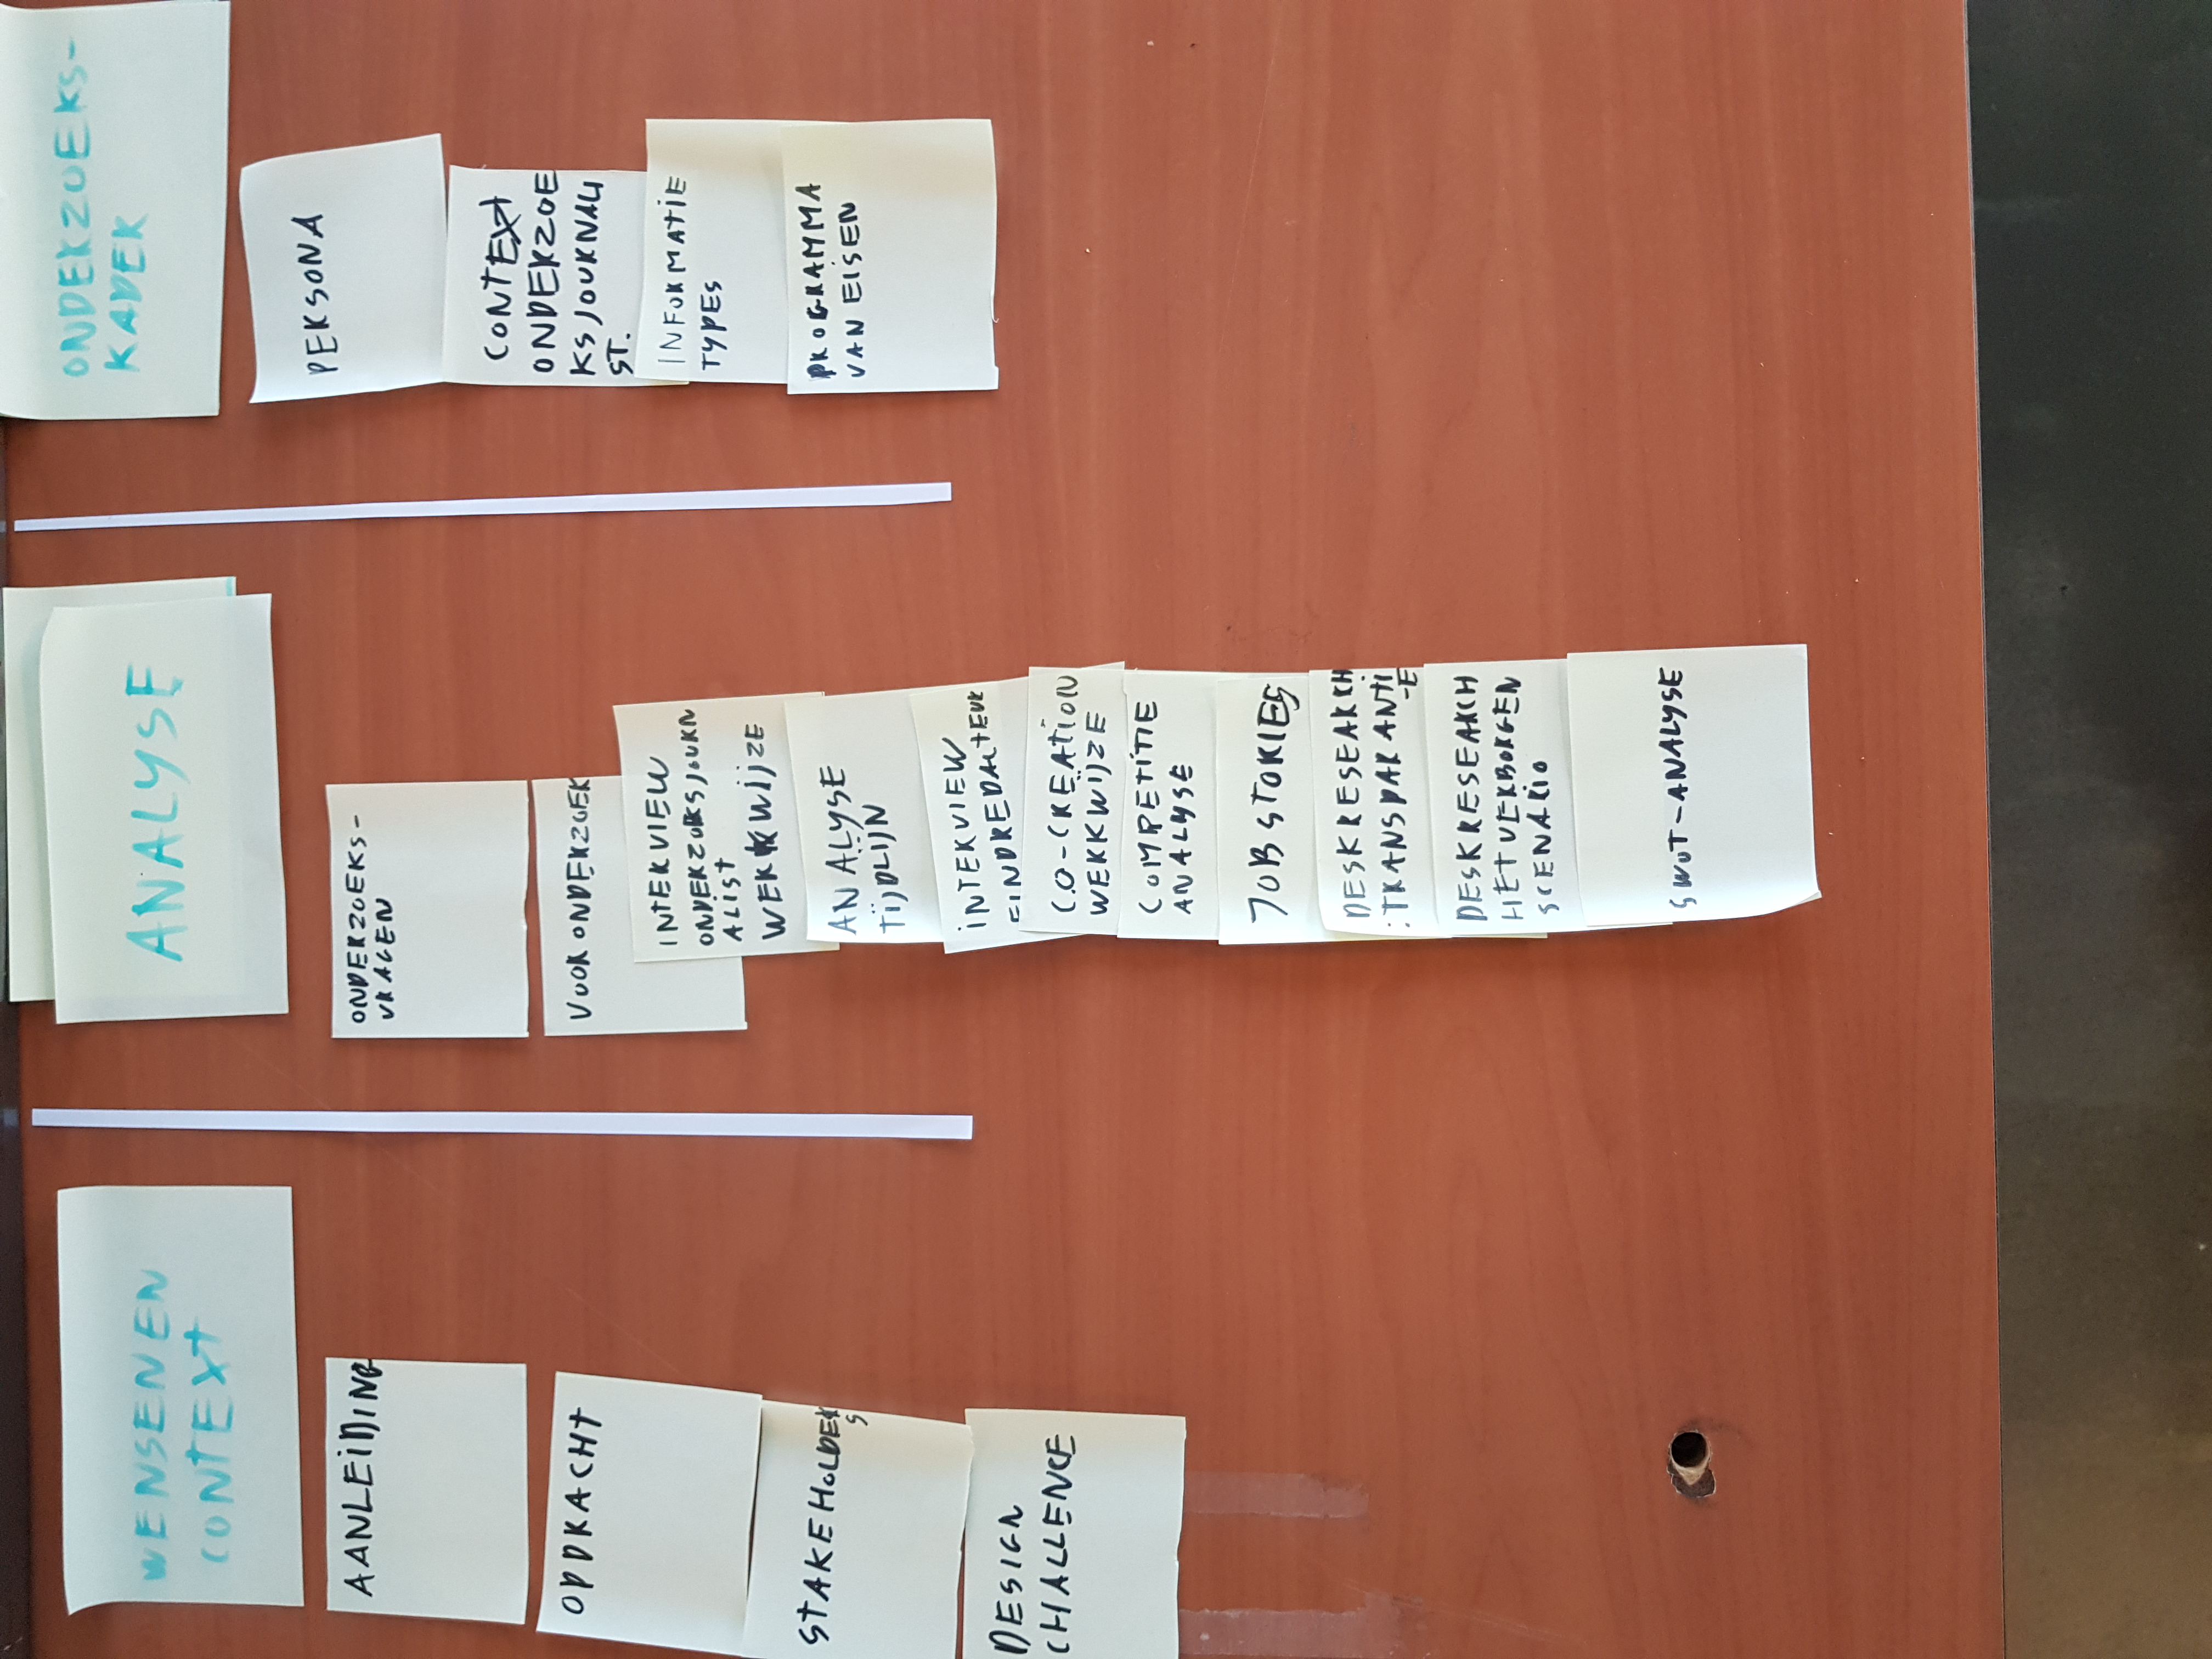 WENSEN EN
CONTEXT
AANLEIDING
OPDRACHT
STAKEHOLDER
S
DESIGN
CHALLENGE
ANALYSE
ONDERZOEKS-
VRAGEN
VOORONDERZOEK
INTERVIEW
ONDERZOEKSJOURN
ALIST
WERKWIJZE
ANALYSE
TIJDLIJN
INTERVIEW
EINDREDACTEUR
CO-CREATION
WERKWIJZE
COMPETITIE
ANALYSE
JOB STORIES
DESKRESEARCH
: TRANSPARANTI
-E
DESKRESEARCH
HET VERBORGEN
SCENARIO
SWOT-ANALYSE
ONDERZOEKS-
KADER
PERSONA
CONTEXT
ONDERZOE
KSJOURNALI
ST.
INFORMATIE
TYPES
PROGRAMMA
VAN EISEN